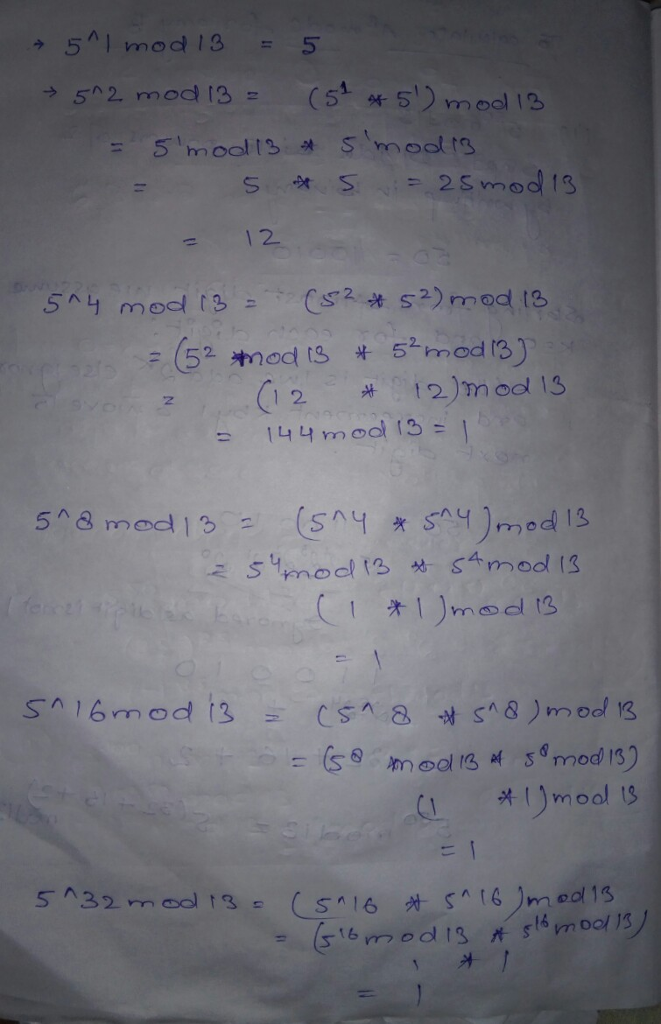 → 5^1 mod 13 = 5
→ 5^2 mod 13 = (5¹ * 5¹) mod 13
= 5¹mod13 * 5¹mod13
= 5 * 5 = 25 mod 13
= 12
5^4 mod 13 = (5² * 5²) mod 13
= (5² mod 13 * 5² mod 13)
= (12 * 12) mod 13
= 144 mod 13 = 1
5^8 mod 13 = (5^4 * 5^4) mod 13
= 5⁴mod 13 * 5⁴ mod 13
(1 * 1) mod 13
= 1
5^16 mod 13 = (5^8 * 5^8) mod 13
= (5⁸ mod 13 * 5⁸ mod 13)
(1 * 1) mod 13
= 1
5^32 mod 13 = (5^16 * 5^16) mod 13
= (5¹⁶ mod 13 * 5¹⁶ mod 13)
1 * 1
= 1